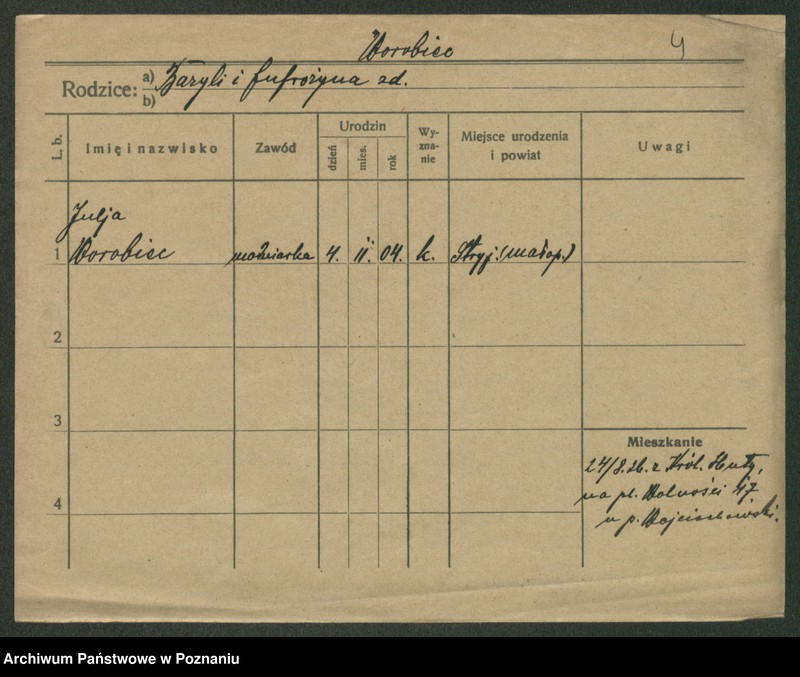 Worobiec 4
Rodzice: a) Bazyli i Eufrozyna zd.
b)
L. b. Imię i nazwisko Zawód Urodzin dzień mies. rok Wy-zna-nie Miejsce urodzenia i powiat Uwagi
Julja
1 Worobiec modniarka 4. II. 04. k. Stryj. (małop.)
2
3
Mieszkanie
24/8. 26. z Król. Huty,
na pl. Wolności 17
4
u p. Wojciechowski.
Archiwum Państwowe w Poznaniu